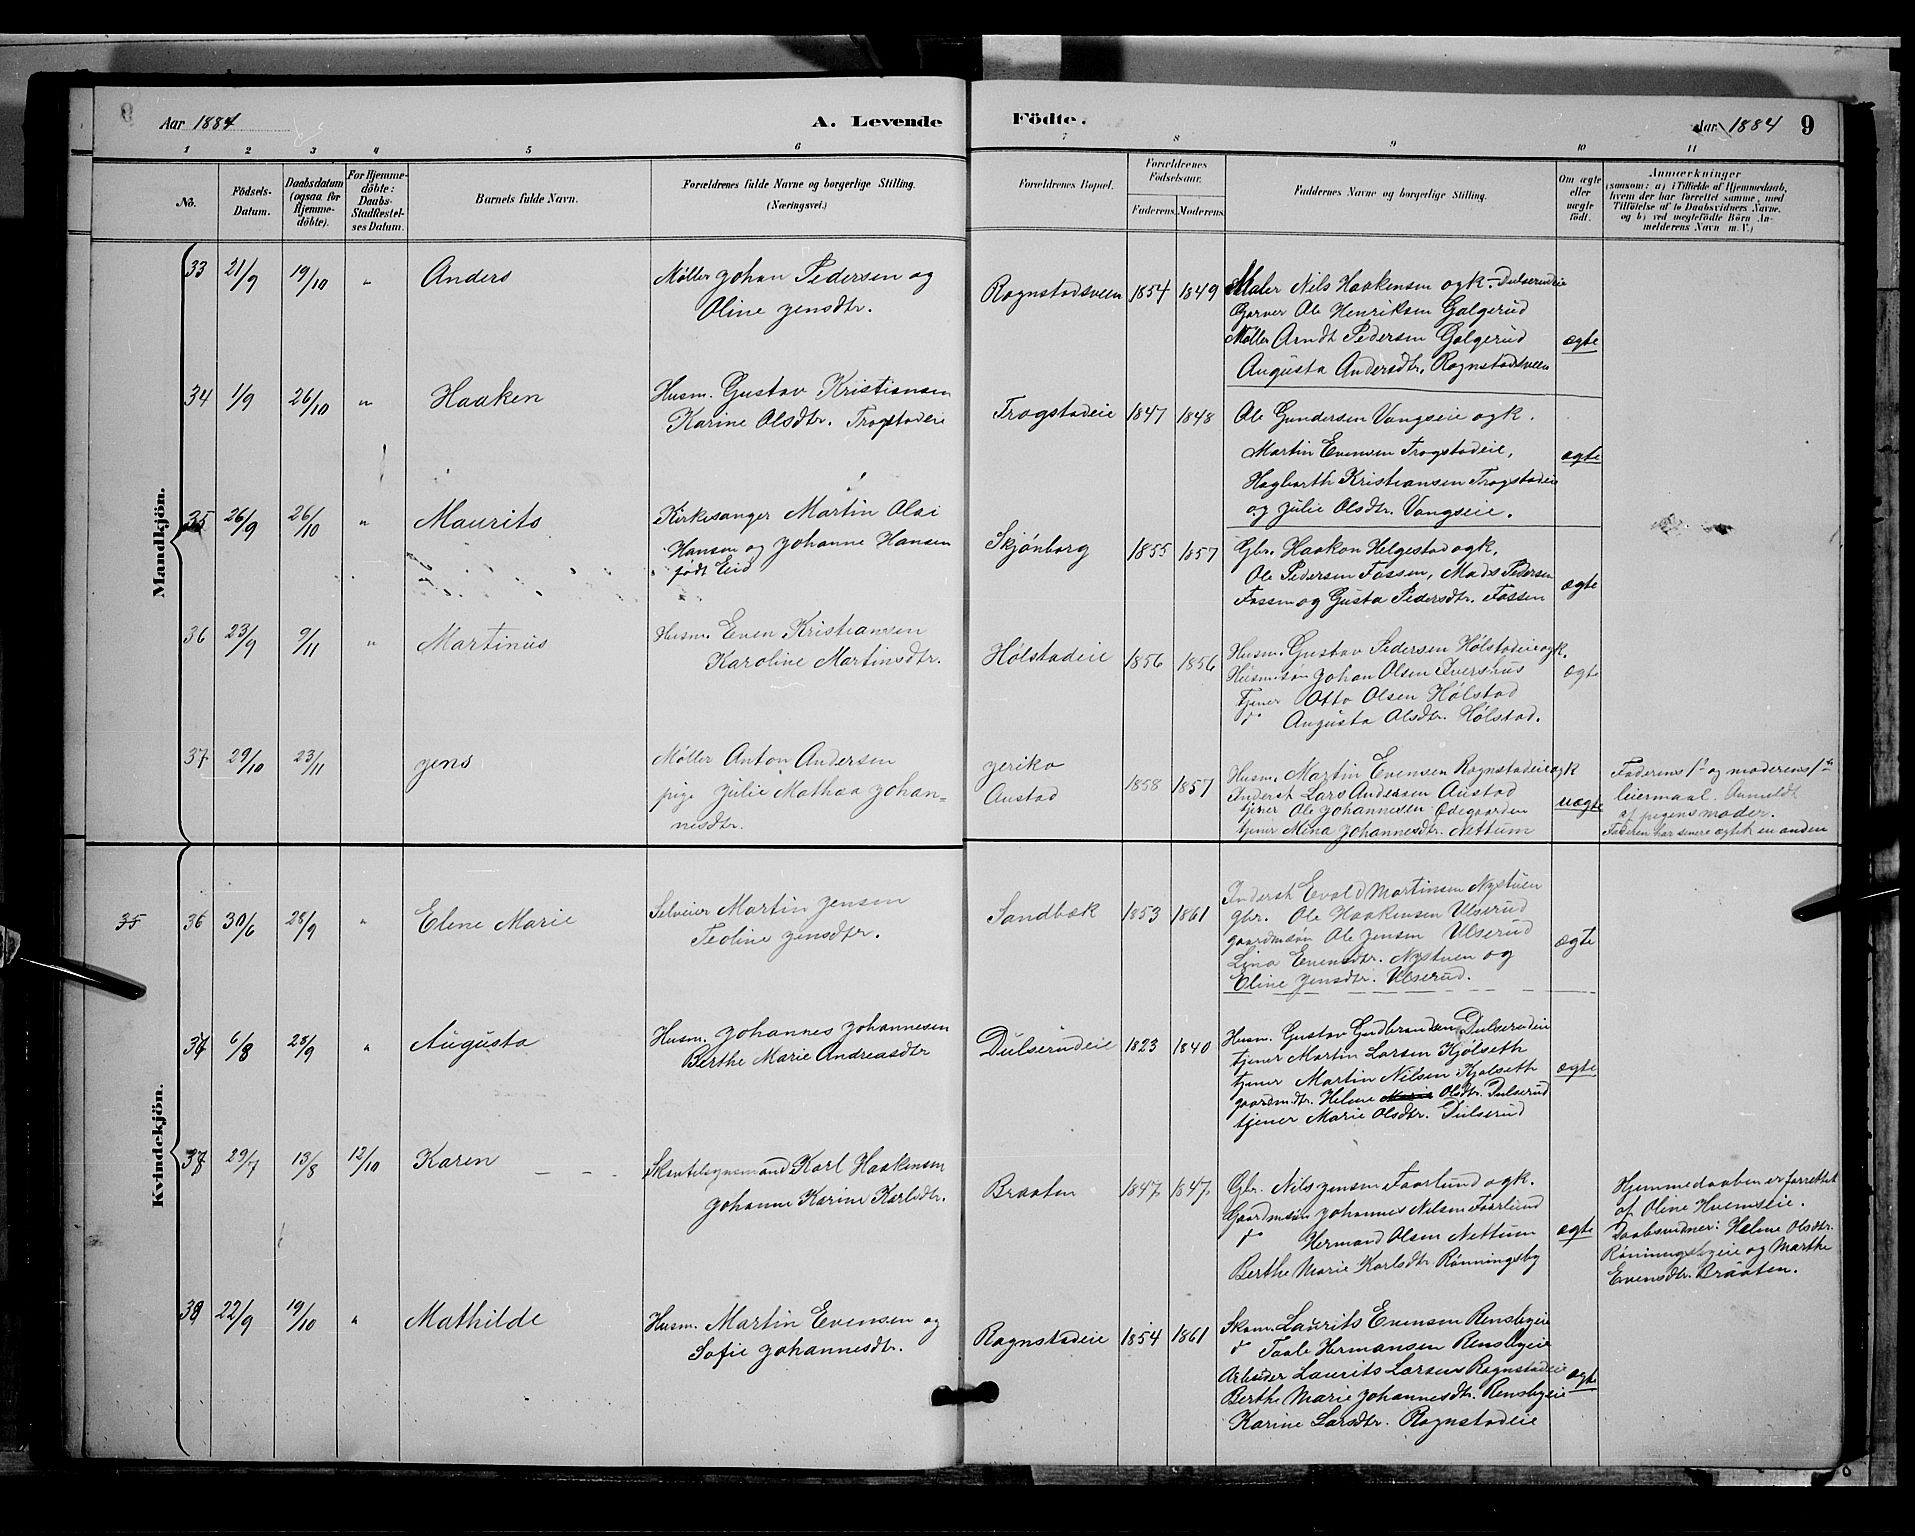 Aar 1884
A. Levende
Födte.
Aar 1884
9
1 2 3 4 5 6 7 8 9 10 11
No.
Födsels-
Datum.
Daabsdatum
(ogsaa for
Hjemme-
döbte).
For Hjemme-
döbte:
Daabs-
Stadfæstel-
ses Datum.
Barnets fulde Navn.
Forældrenes fulde Navne og borgerlige Stilling.
(Næringsvei.)
Forældrenes Bopæl.
Forældrenes
Födselsaar.
Faderens. Moderens.
Faddernes Navne og borgerlige Stilling.
Om ægte
eller
uægte
født.
Anmærkninger
(saasom: a) i Tilfælde af Hjemmedaab,
hvem der har forrettet samme, med
Tilföielse af to Daabsvidners Navne,
og b) ved uægtefödte Börn An-
melderens Navn m. V.)
Mandkjön.
33 21/9 19/10 " Anders
Møller Johan Pedersen og
Oline Jensdtr.
Rognstadsveen 1854 1849
Maler Nils Haakensen ogk. Dulserudeie
Garver Ole Henriksen Galgerud
Møller Arndt Pedersen Galgerud
Augusta Andersdtr. Rognstadsveen
ægte
34 1/9 26/10 " Haaken
Husm. Gustav Kristiansen
Karine Olsdtr. Trogstadeie
Trogstadeie 1847 1848
Ole Gundersen Vangseie ogk.
Martin Evensen Trogstadeie,
Hagbarth Kristiansen Trogstadeie
og Julie Olsdtr. Vangseie.
ægte
35 26/9 26/10 " Maurits
Kirkesanger Martin Olai
Hansen og Johanne Hansen
født Eid
Skjønborg 1855 1857
Gbr. Haakon Helgestad ogk,
Ole Pedersen Fossen, Mads Pedersen
Fossen og Gusta Pedersdtr. Fossen
ægte
36 23/9 9/11 " Martinus
Husm. Even Kristiansen
Karoline Martinsdtr.
Hølstadeie 1856 1856
Husm. Gustav Pedersen Hølstadeie ogk.
Husmsøn Johan Olsen Ivershus
tjener Otto Olsen Hølstad
do Augusta Olsdtr. Hølstad.
ægte
37 29/10 23/11 Jens
Møller Anton Andersen
pige Julie Mathea Johan=
nesdtr.
Jeriko
Austad
1858 1857
Husm. Martin Evensen Rognstadeie ogk
Inderst Lars Andersen Austad
tjener Ole Johannesen Ødegaarden
tjener Mina Johannesdtr. Nettum
uægte
Faderens 1ste og moderens 1ste
leiermaal. Anmeldt
af pigens moder.
Faderen har senere ægtet en anden
Kvindekjön.
35 36 30/6 28/9 " Elene Marie
Selveier Martin Jensen
Teoline Jensdtr.
Sandbæk 1853 1861
Inderst Evald Martinsen Nystuen
gbr. Ole Haakensen Ulserud
gaardmsøn Ole Jensen Ulserud
Lina Evensdtr. Nystuen og
Eline Jensdtr. Ulserud.
ægte
37 6/8 28/9 " Augusta
Husm. Johannes Johannesen
Berthe Marie Andreasdtr
Dulserudeie 1823 1840
Husm. Gustav Gudbrandsen Dulserudeie
tjener Martin Larsen Kjølseth
tjener Martin Nilsen Kjølseth
gaardm.dtr. Helene Marie Olsdtr. Dulserud
tjener Marie Olsdtr. Dulserud
ægte
38 29/7 13/8 12/10 Karen
Skovtilsynsmand Karl Haakensen
Johanne Karine Karlsdtr.
Braaten 1847 1847
Gbr. Nils Jensen Faarlund ogk.
Gaardmsøn Johannes Nilsen Faarlund
do Hermand Olsen Nettum
Berthe Marie Karlsdtr. Rønningsby
ægte
Hjemmedaaben er forrettet
af Oline Huemseie.
Daabsvidner: Helene Olsdtr.
Rønningsbyeie og Marthe
Evensdtr. Braaten.
39 22/9 19/10 " Mathilde
Husm. Martin Evensen og
Sofie Johannesdtr.
Rognstadeie 1854 1861
Skom. Laurits Evensen Rensbyeie
do Taale Hermansen Rensbyeie
Arbeider Laurits Larsen Rognstadeie
Berthe Marie Johannesdtr. Rensbyeie
Karine Larsdtr. Rognstadeie
ægte